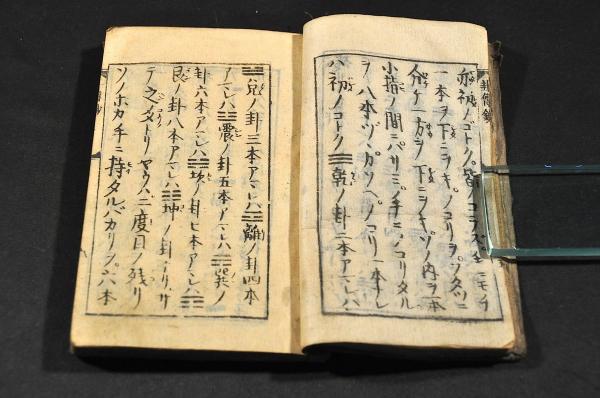 亦初ノコトク皆コラズ手ニモチ
一本ヲ下ニヲキノコリヲフタツニ
分ケ一方ヲ下ニヲキソノ内ヲ一本
小指ノ間ニハサミ手ニノコリタル
ヲ八本ツヽカゾヘノコリ一本ナレ
ハ初ノコトク☰乾ノ卦二本アマレハ
☱兌ノ卦三本アマレハ☲離ノ卦四本
アマレハ☳震ノ卦五本アマレハ☴巽ノ
卦六本アマレハ☵坎ノ卦七本アマレハ☶
艮ノ卦八本アマレハ☷坤ノ卦ナリサ
テ トリヤウハ二度目ノ残リ
ソノホカ手ニ持タルバカリヲ六本